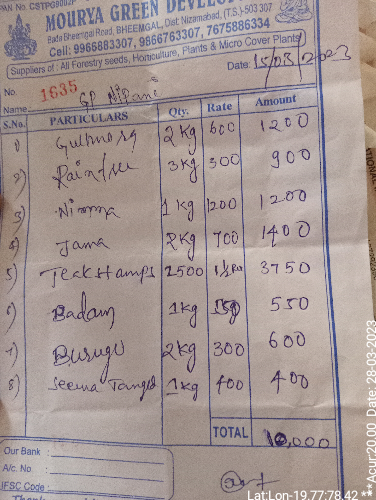 PAN No. CSTPG9002P
MOURYA GREEN DEVELO
Bada Bheemgal Road, BHEEMGAL, Dist: Nizamabad, (T.S.)-503 307
Cell: 9966883307, 9866763307, 7675886334
Suppliers of : All Forestry seeds, Horticulture, Plants & Micro Cover Plants
No. 1635 Date: 15/03/2023
Name GP Nipani
S.No. PARTICULARS Qty. Rate Amount
1) Gulmorg 2kg 600 1200
2) Raintree 3kg 300 900
3) Nimma 1kg 1200 1200
4) Jama 2kg 700 1400
5) Teakstamps 2500 3750
6) Badam 1kg 550
7) Burugu 2kg 300 600
8) Seema Tanged 1kg 400 400
TOTAL 10,000
Our Bank :
A/c. No. :
IFSC Code :
Lat:Lon-19.77:78.42 ***Acur:20.00 Date: 28-03-2023